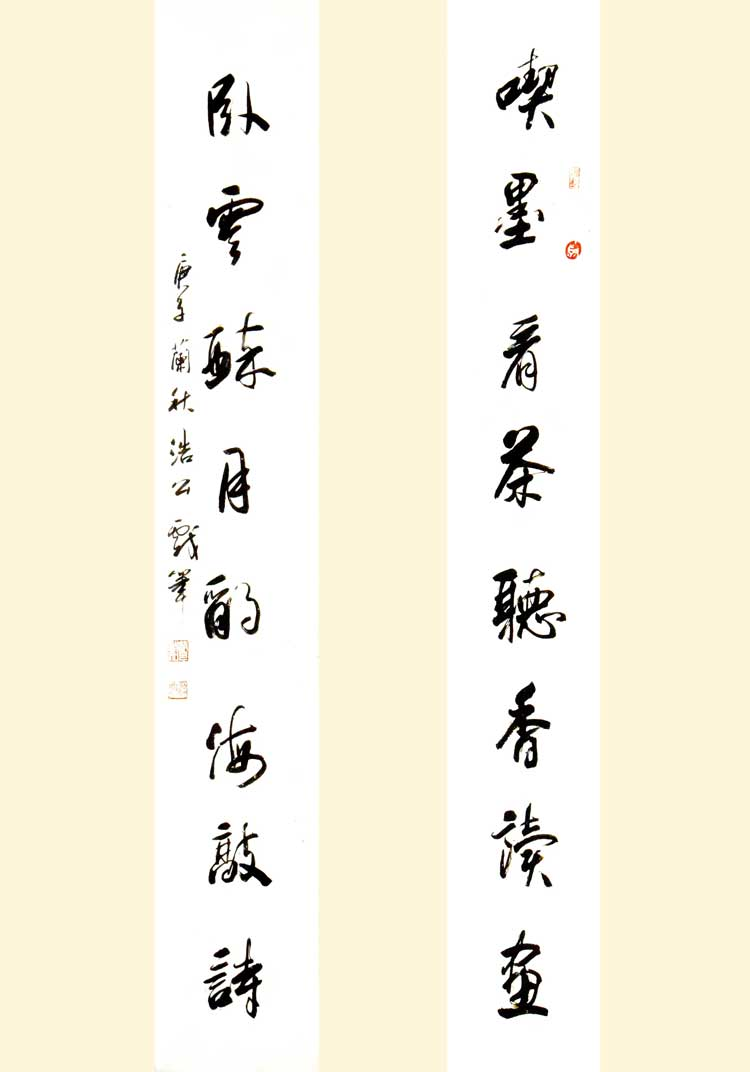 喫墨看茶聽香讀畫
卧雲醉月酌海敲詩
庚子蘭秋浩公戲筆